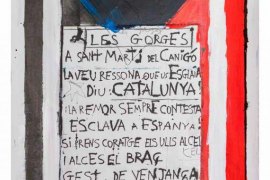 LES GORGES
A SANT MARTÍ DEL CANIGÓ
LA VEU RESSONA QUE US ESGLAIA
DIU: CATALUNYA!
I LA REMOR SEMPRE CONTESTA
ESCLAVA A ESPANYA!
SI PRENS CORATGE ELS ULLS AL CEL
I ALCES EL BRAÇ
GEST DE VENJANÇA